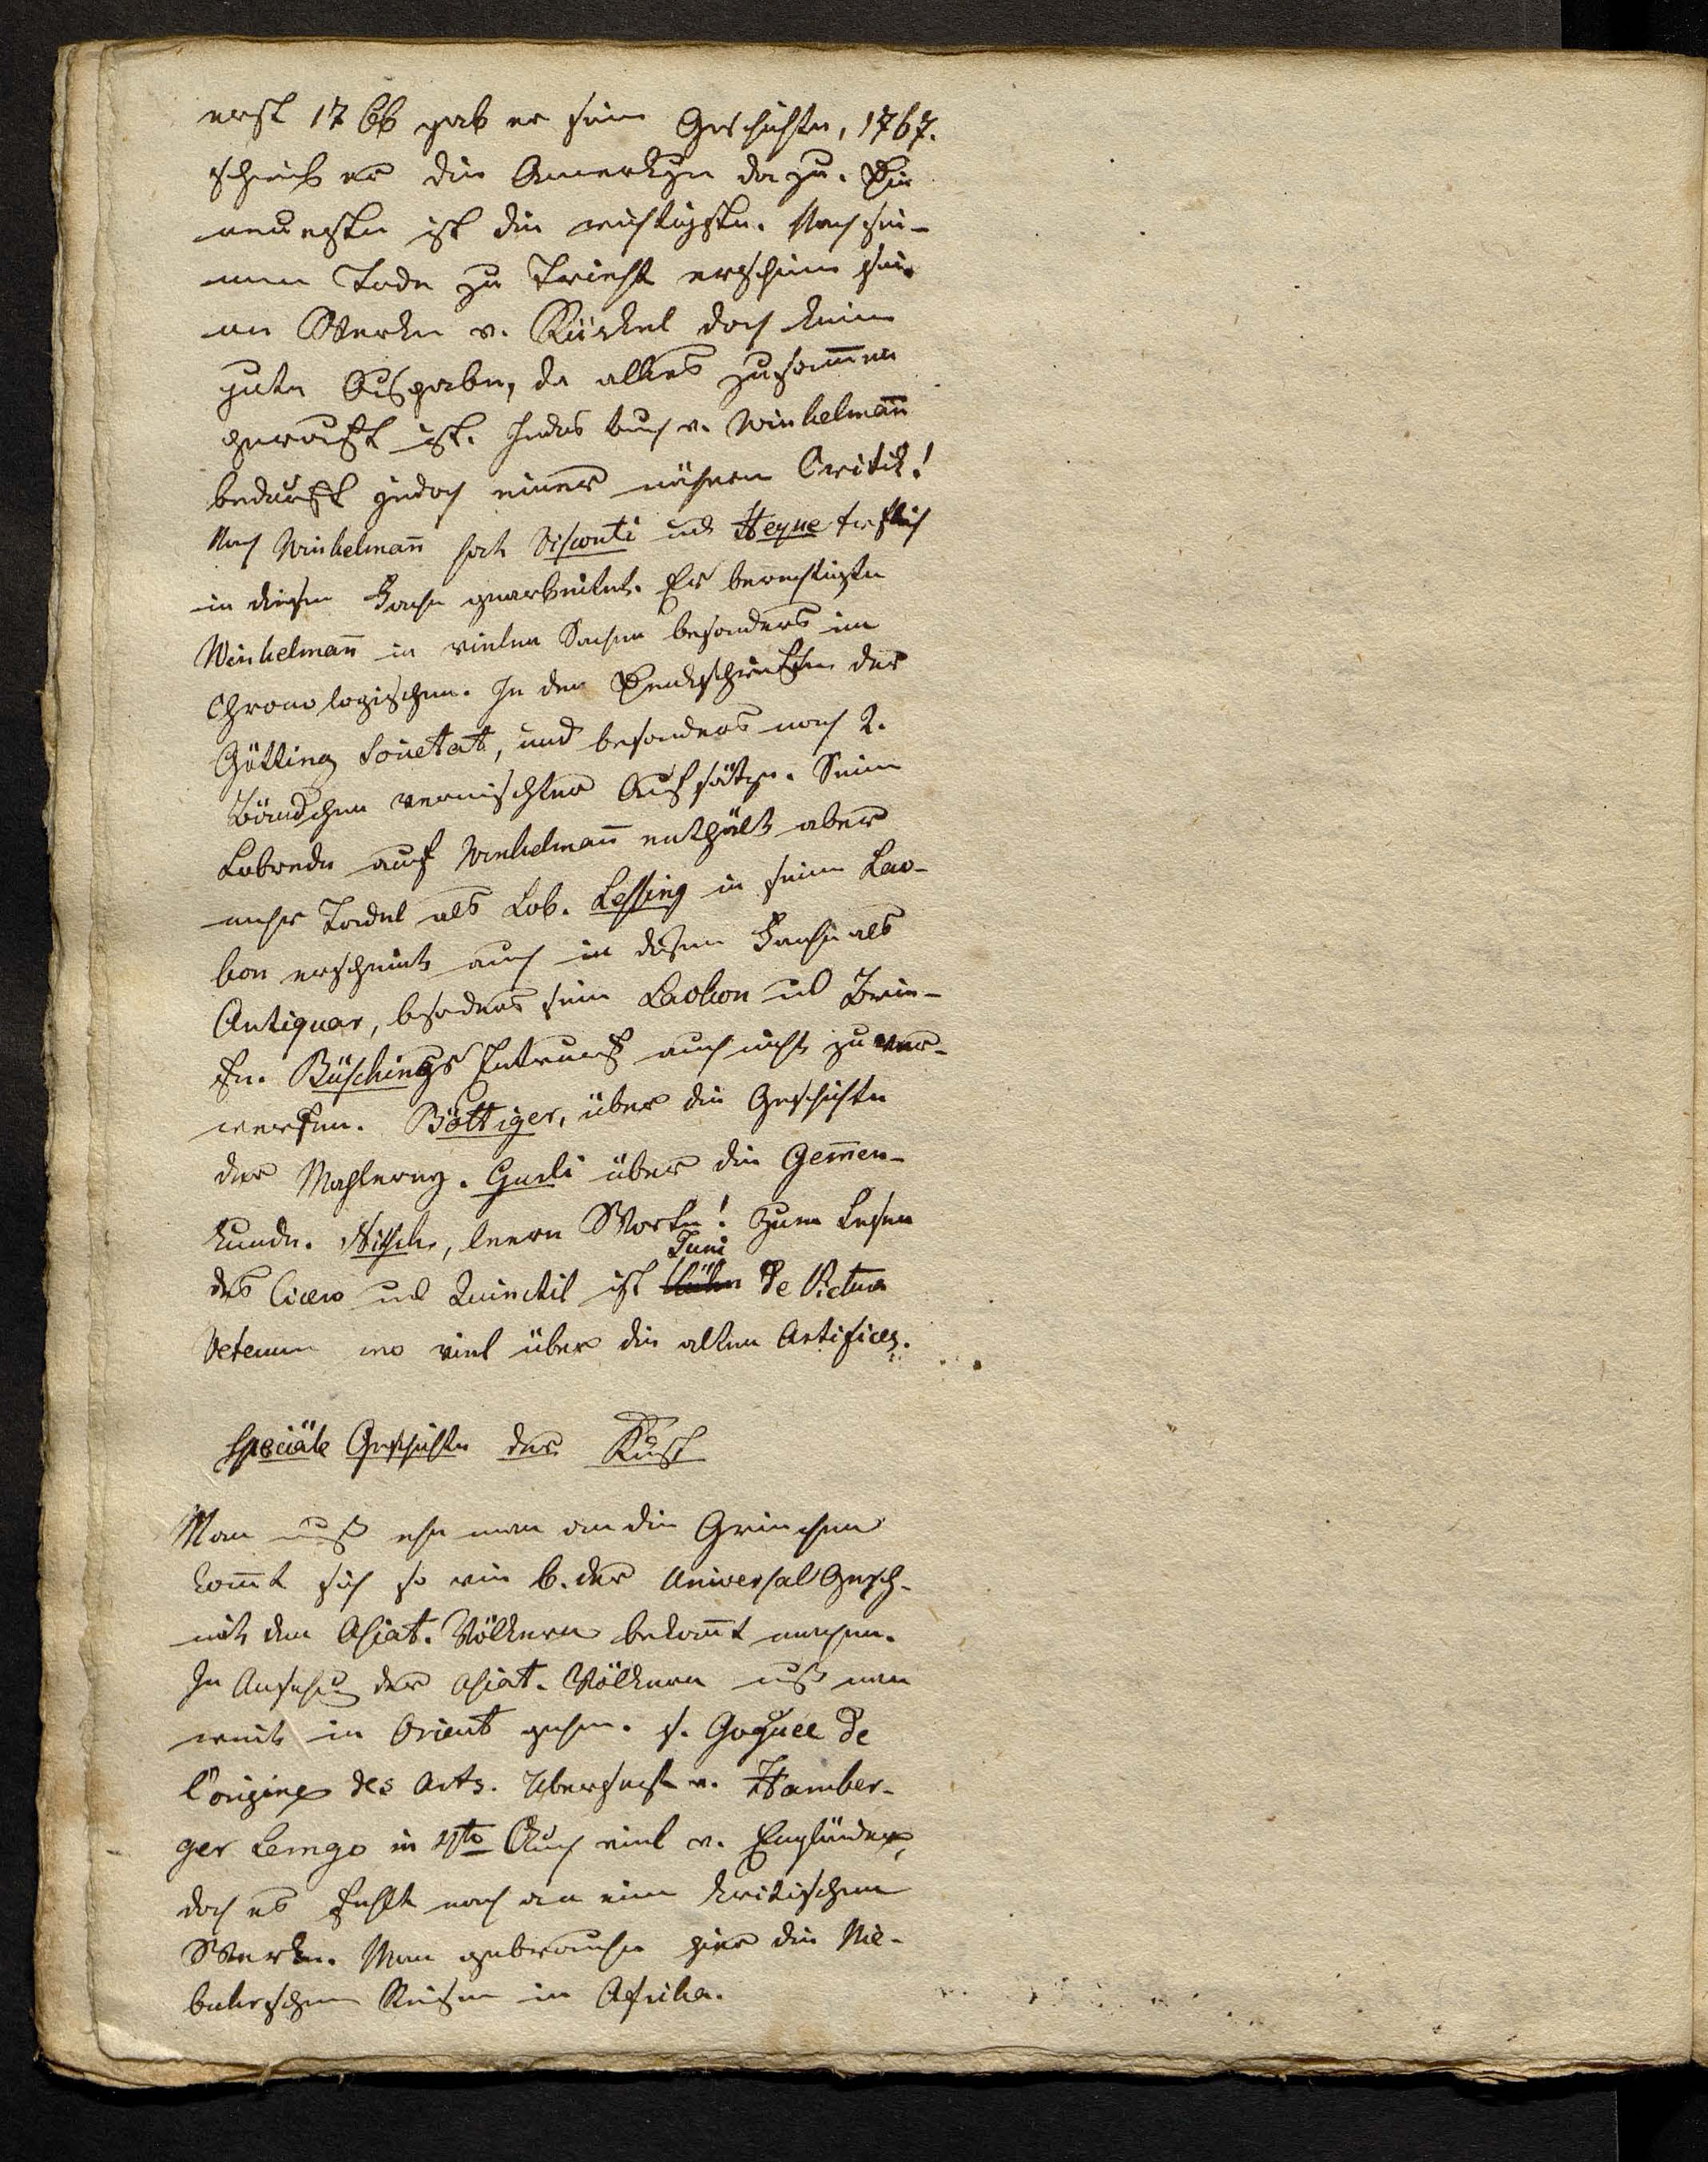 erst 1766 gab er seine Geschichte, 1767.
schrieb er die Anmerkgen dazu. Die
neueste ist die wichtigste. Nach sei-
nem Tode zu Triest erschienen sei-
ne Werke v. Rückel doch keine
gute Ausgabe, da alles zusammen
gerafft ist. Jedes Buch v. Winkelmañ
bedurft jedoch einer nähern Critik!
Nach Winkelmañ hat Visconti und Heyne treflich
in diesem Fache gearbeitet. Er berechtigte
Winkelmañ in vielen Sachen besonders im
Chronologischen. In den Denkschriften der
Götting Societat, und besonders noch 2.
Bändchen vermischter Aufsätze. Seine
Lobrede auf Winkelmañ enthält aber
mehr Tadel als Lob. Lessing in seinem Lao-
kon erscheint auch in diesem Fache als
Antiquar, besoders sein Laokon und Brie-
fe. Büschings Entwurf auch nicht zu ver-
werfen. Böttiger, über die Geschichte
der Mahlerey. Gurli über die Gem̄en-
kunde. Nitsch, leere Worte! Zum Lesen
des Cicero und Quinctil ist Juni de Pictura
Veterum wo viel über die alten Artifices.
Speciäle Geschichte der Kũst
Man muß ehe man an die Griechen
kom̄t sich so wie b. der Universal Gesch.
mit den Asiat. Völkern bekañt machen.
In Ansehũg der Asiat. Völkern muß man
weit in Orient gehen. s. Goguee de
l'origine des arts. Ubersetzt v. Hamber-
ger Lemgo in 4to Auch viel v. Engländer,
doch es fehlt noch an einem kritischen
Werke. Man gebrauche hier die Nie-
buhrschen Reisen in Afrika.